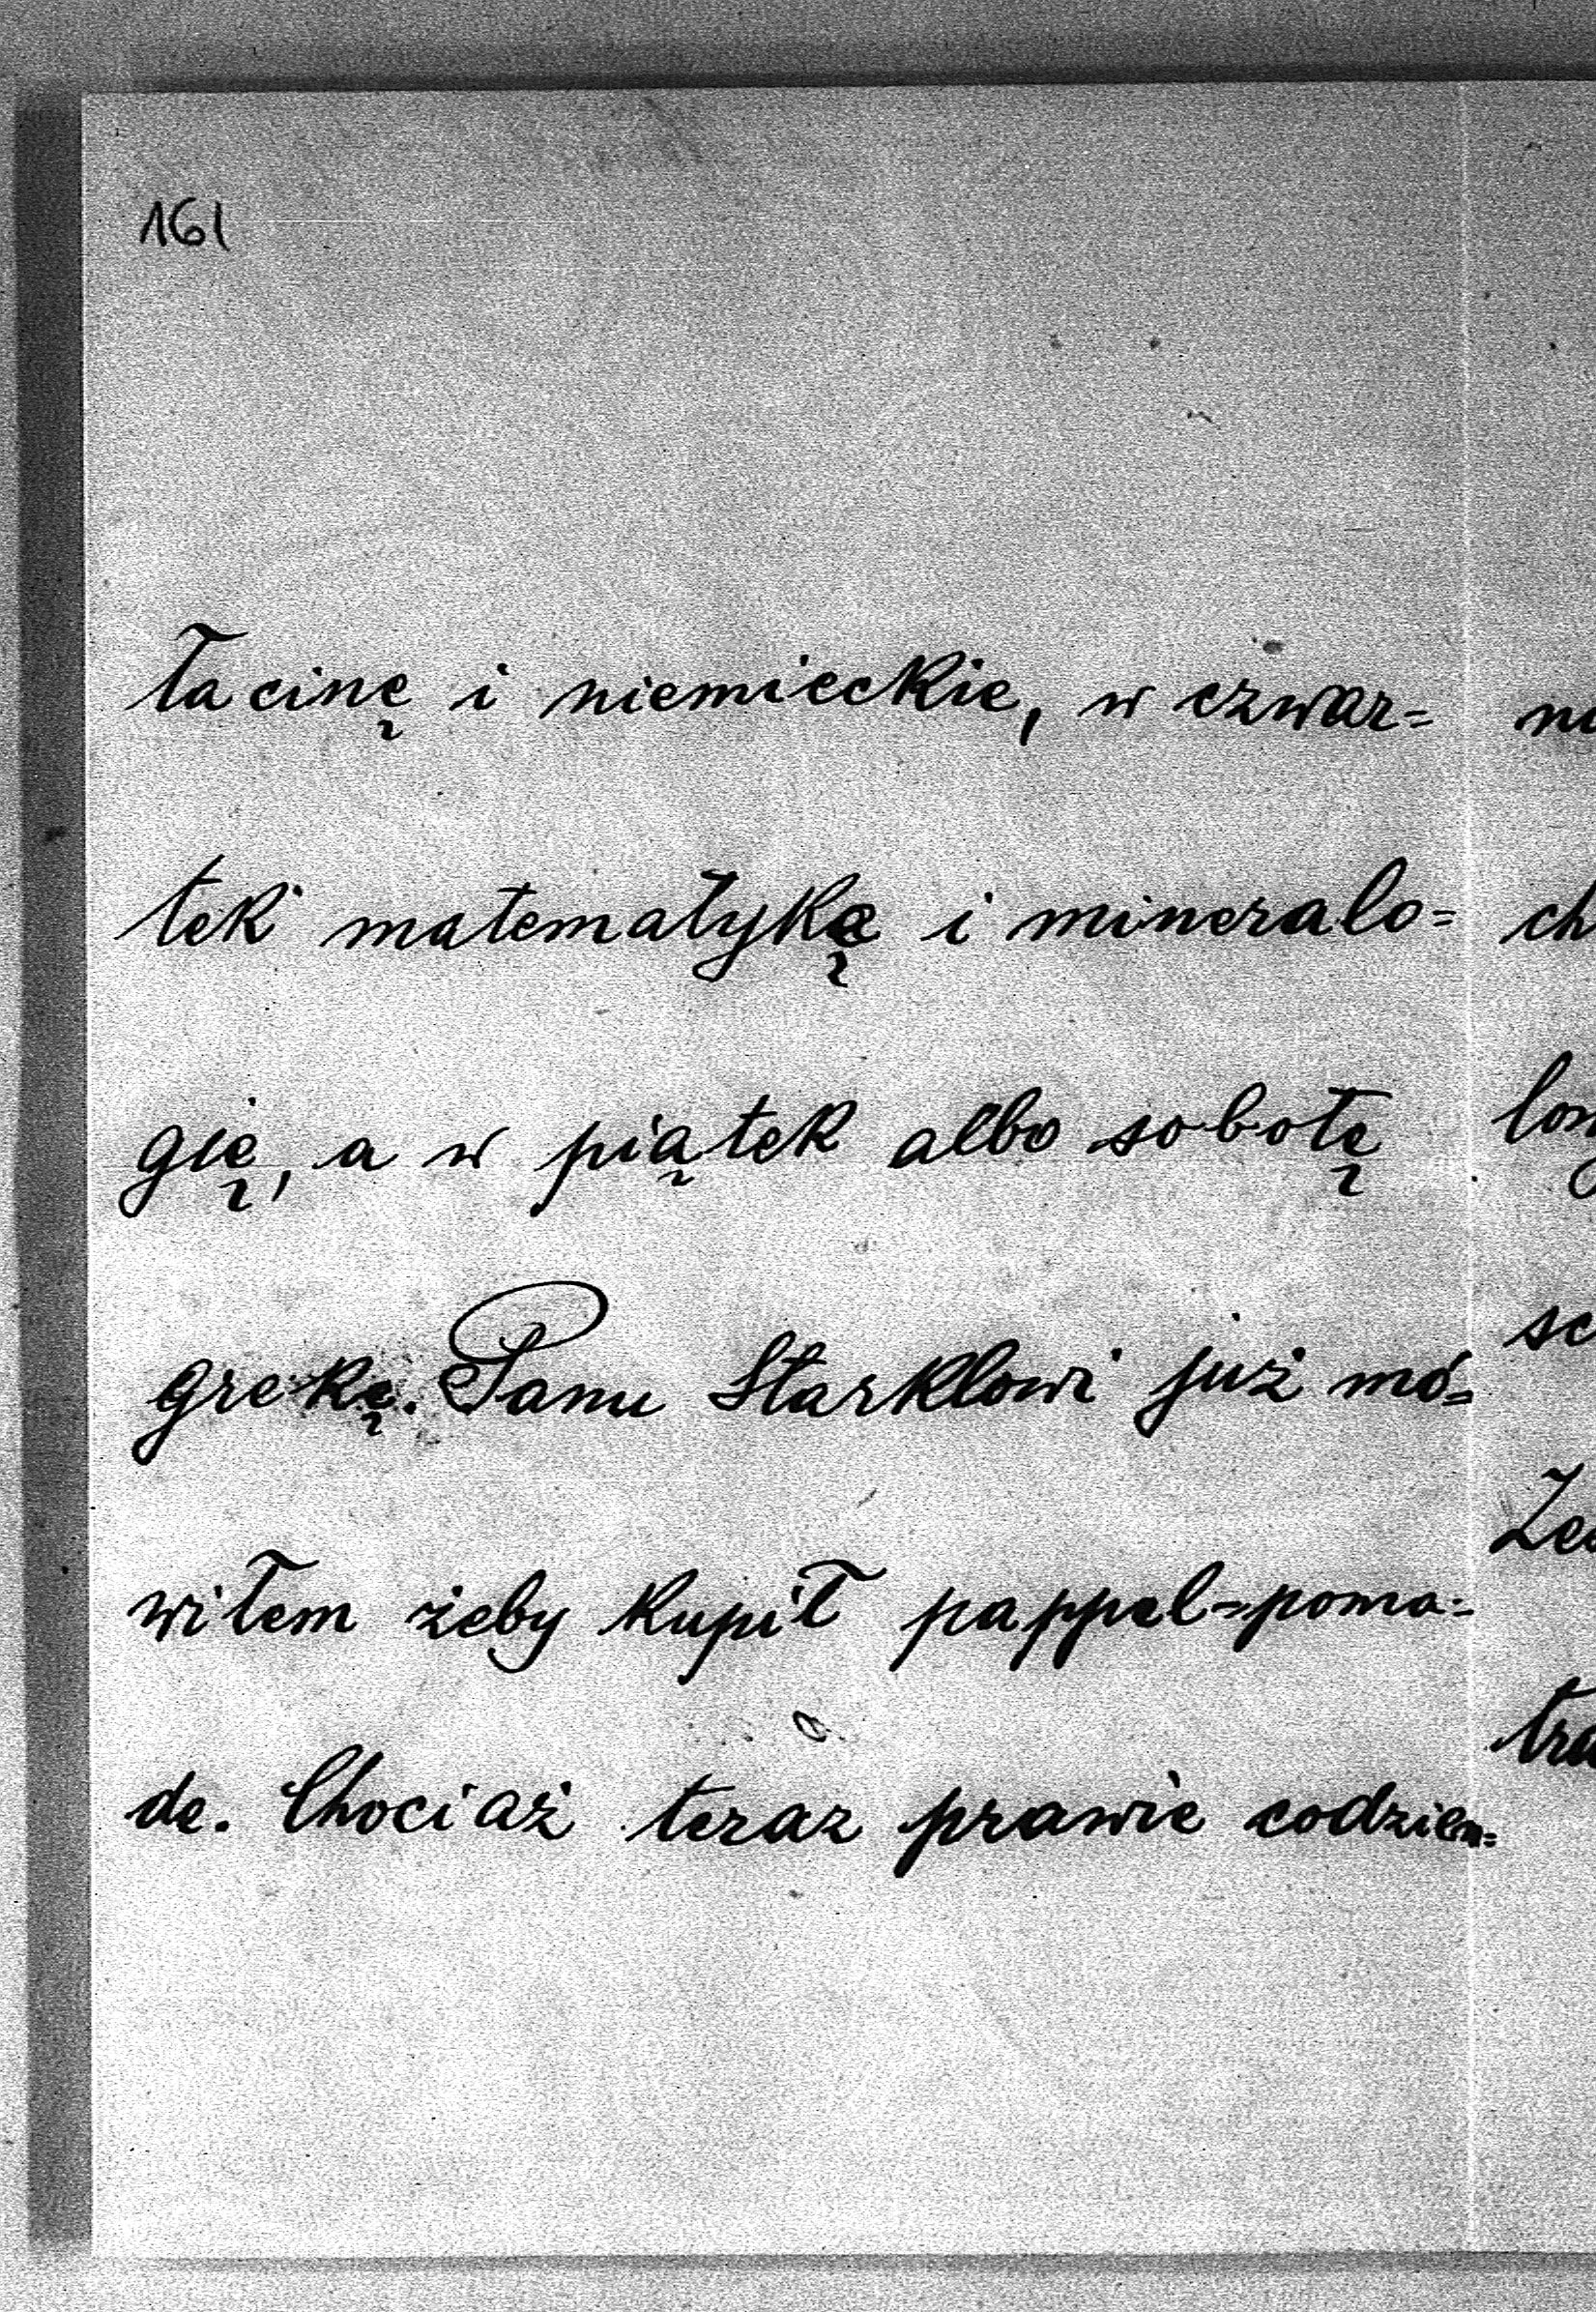 161
łacinę i niemieckie, w czwar=
tek matematykę i mineralo=
gię, a w piątek albo sobotę
grekę. Panu Starklowi już mó=
wiłem żeby kupił pappel=poma=
de. Chociaż teraz prawie codzien=